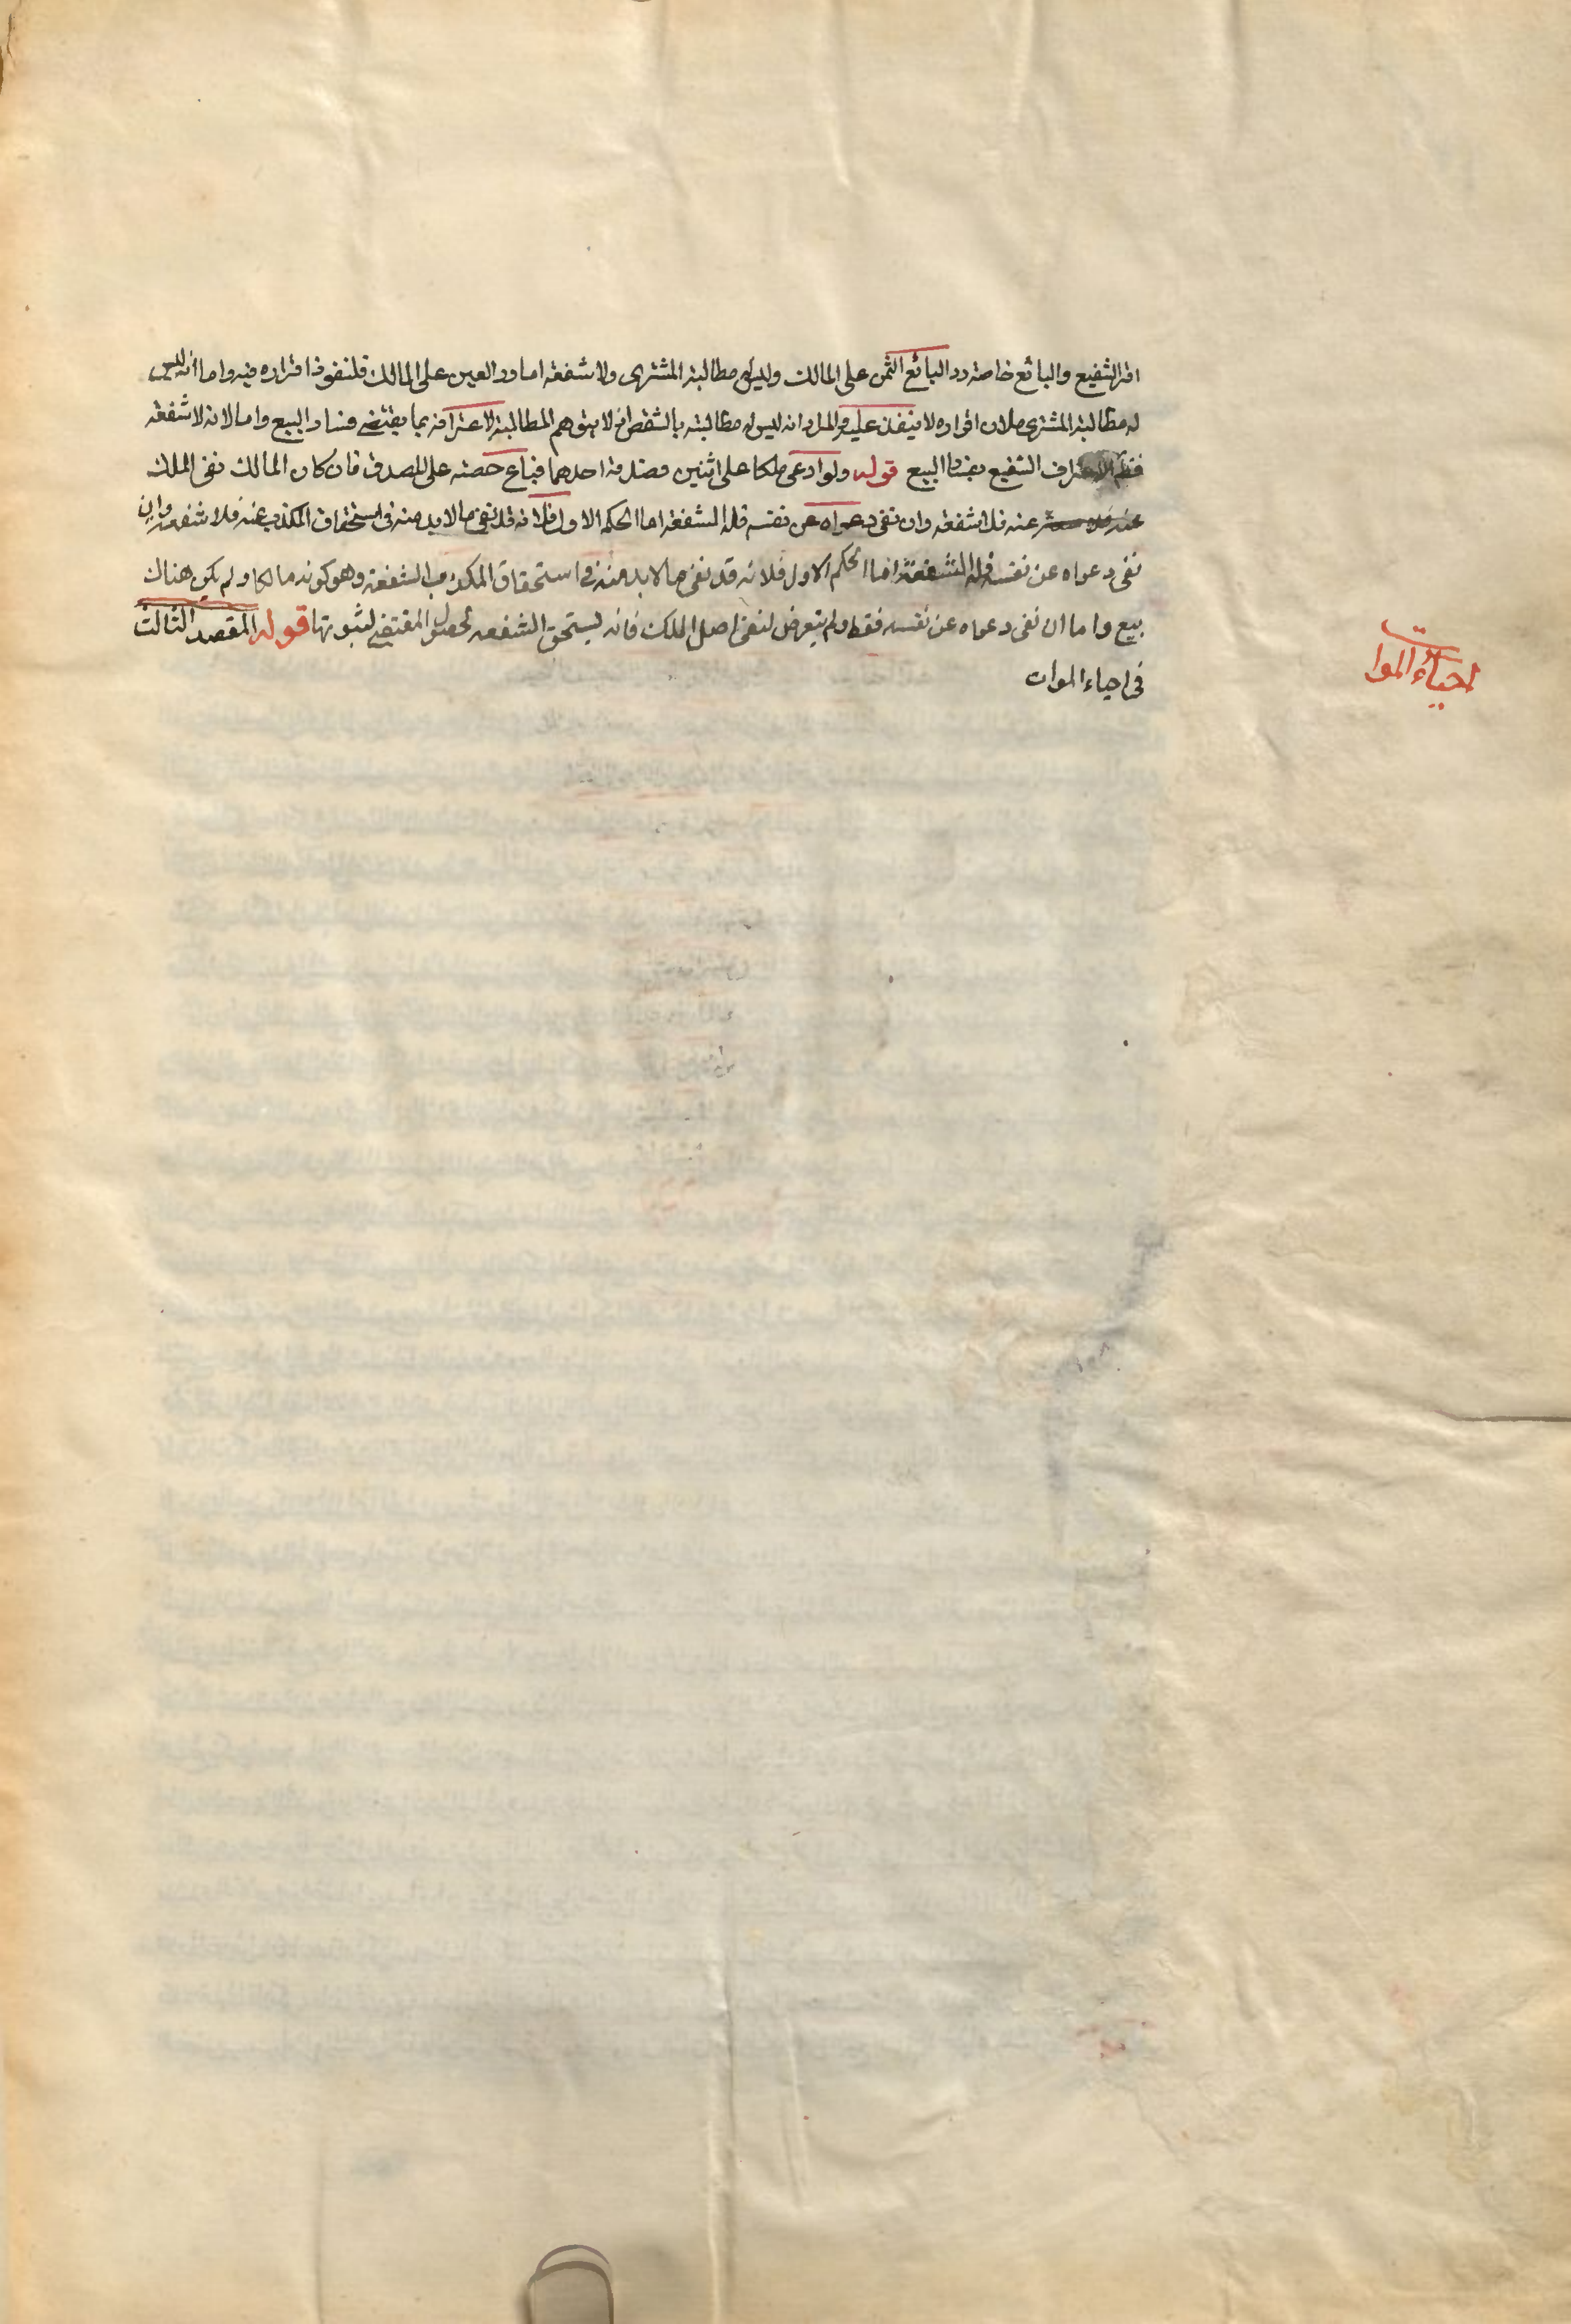 اقر الشفيع والبائع خاصة رد البائع الثمن على المالك وليس له مطالبة المشترى ولا شفعة اما رد العين على المالك فلنفوذ اقراره فيه واما انه ليس
له مطالبة المشترى فلان اقراره لا ينفذ عليه والمراد انه ليس له مطالبته بالشقص اذ لا يتوهم المطالبة لاعترافه بما يقتضى فساد البيع واما لانه لا شفعة
فلاعتراف الشفيع بفساد البيع قوله ولو ادعى ملكا على اثنين فصدقه احدهما فباع حصته على المصدق فان كان المالك نفى الملك
عنه فلا شفعة وان نفى دعواه عن نفسه فله الشفعة اما الحكم الاول فلانه قد نفى ما لابد منه فى استحقاق المكذب عنه فلا شفعة وان
نفى دعواه عن نفسه فله الشفعة اما الحكم الاول فلانه قد نفى ما لابد منه فى استحقاق المكذب الشفعة وهو كونه مالكا ولم يكن هناك
بيع واما ان نفى دعواه عن نفسه فقط ولم يتعرض لنفى اصل الملك فانه يستحق الشفعه لحصول المقتضى لثبوتها قوله المقصد الثالث
فى احياء الموات
احياء الموات